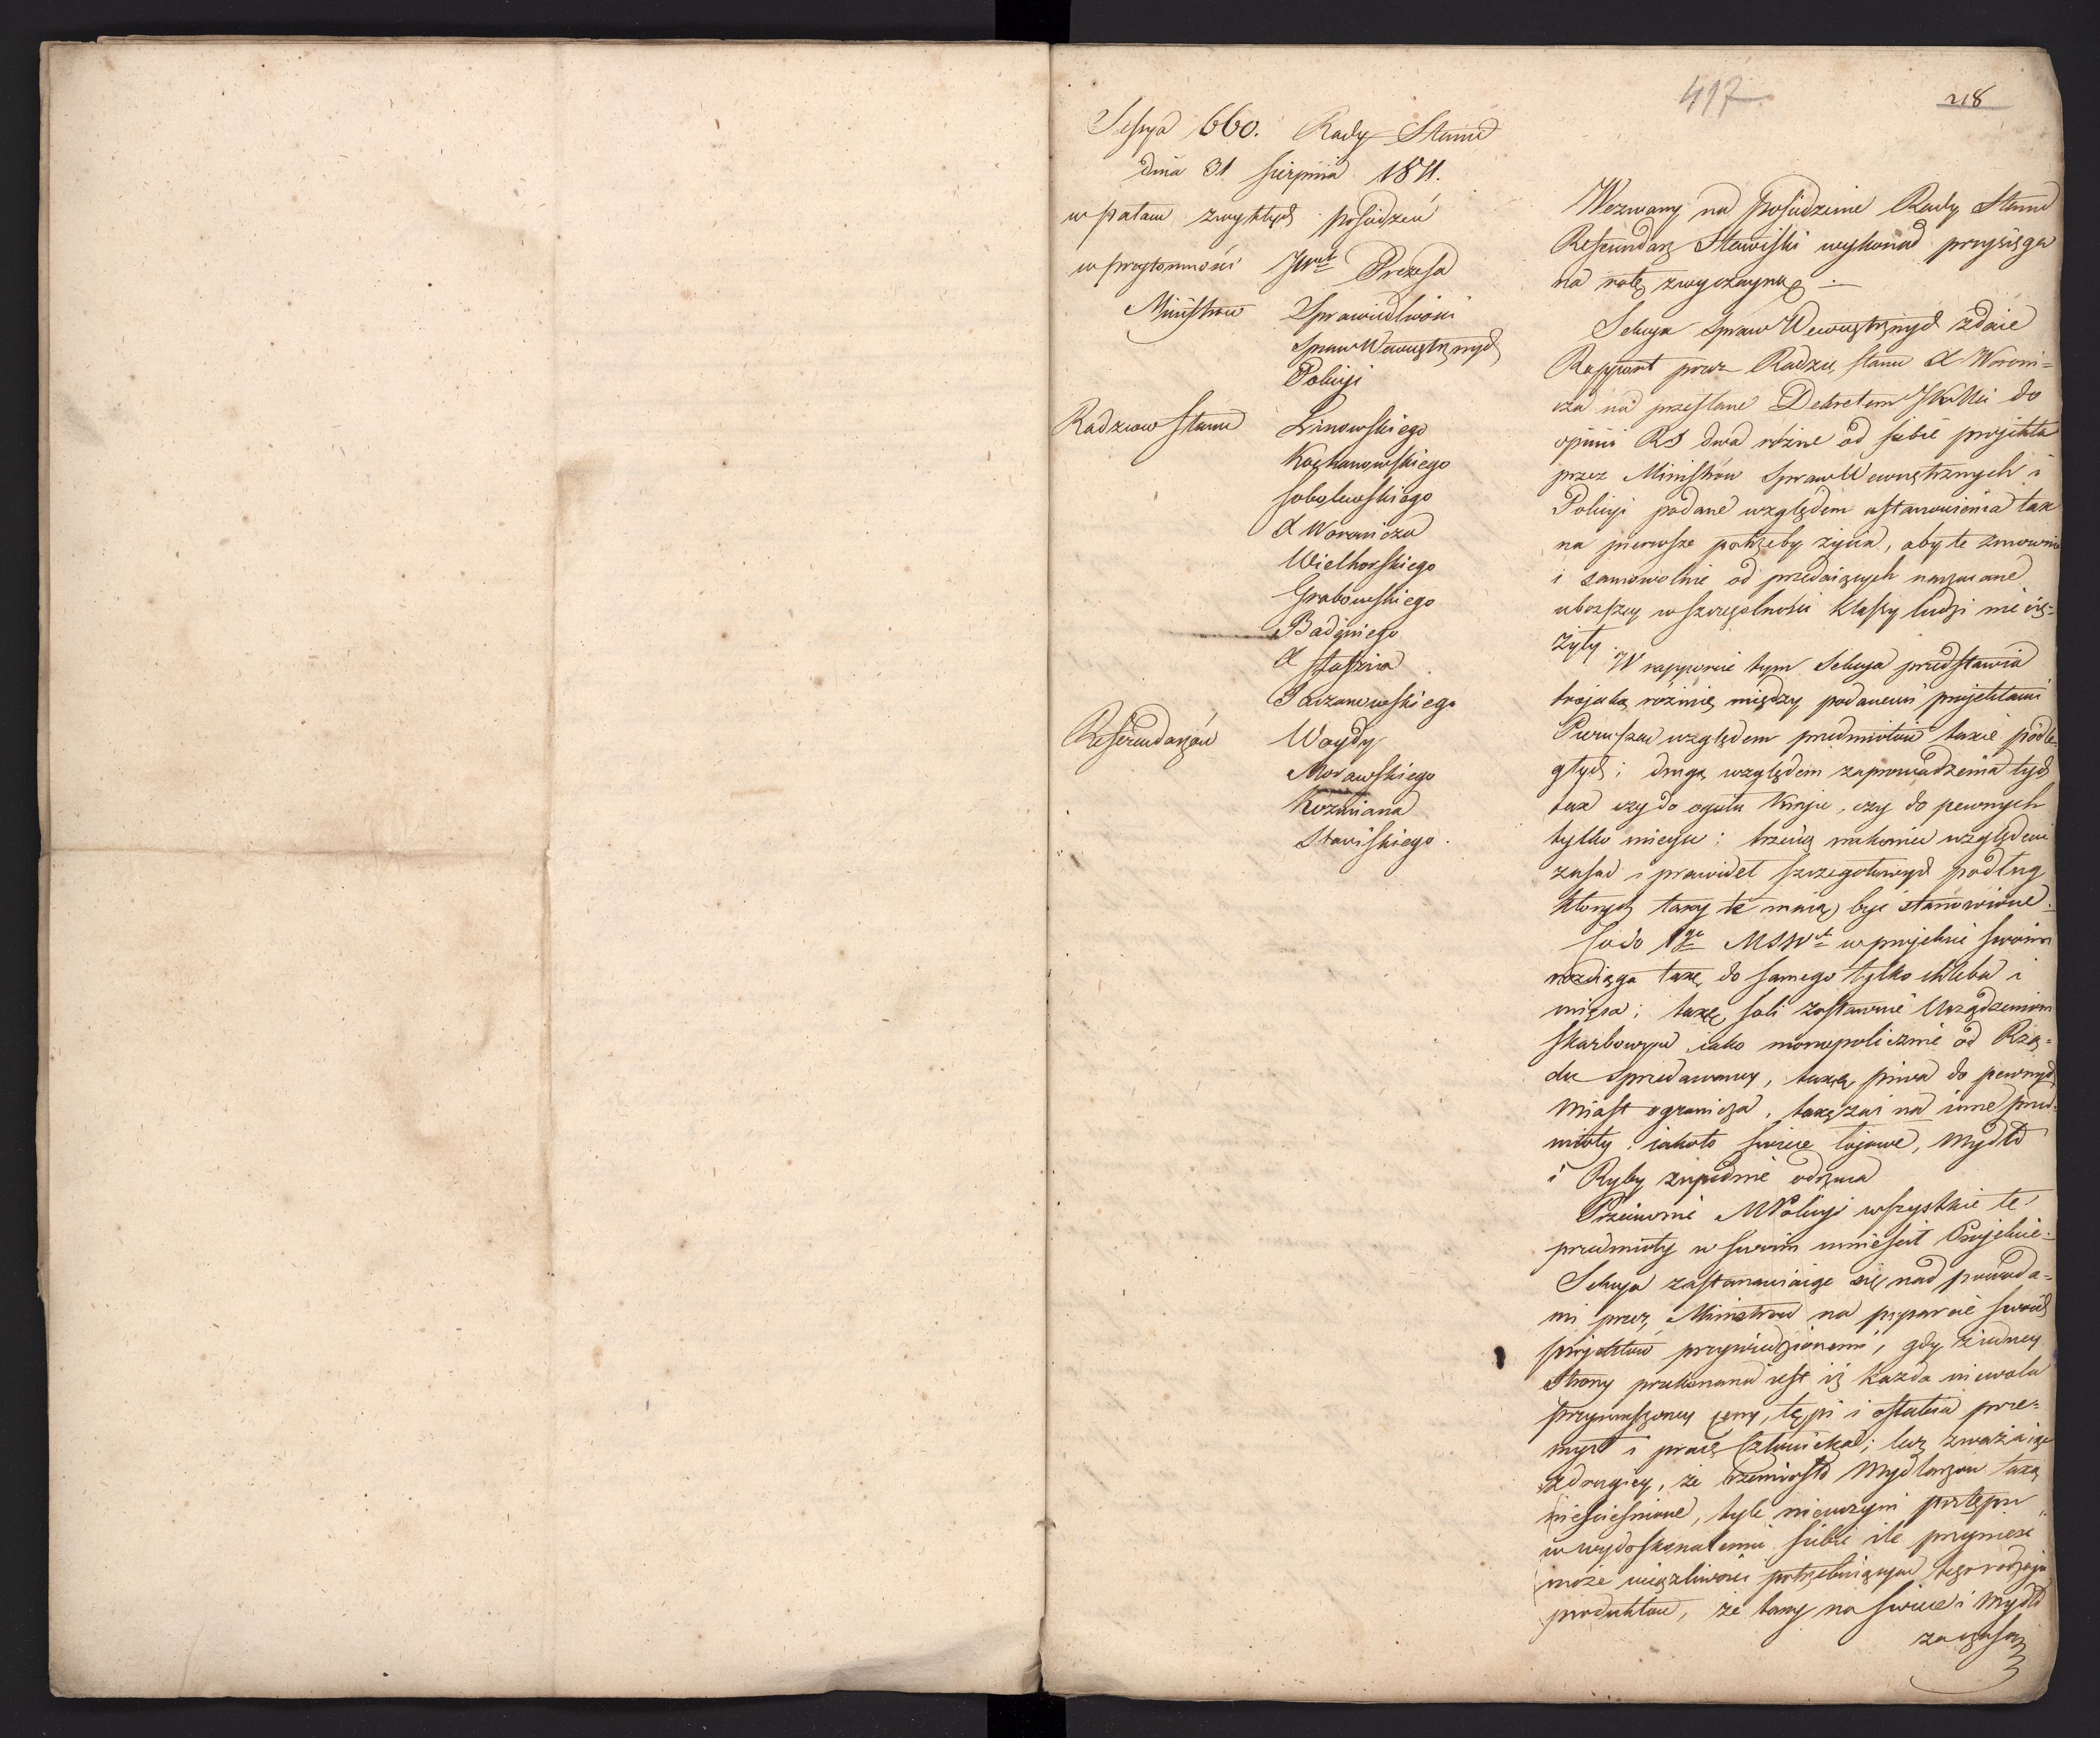 417
218
Sessya 660. Rady Stanu
dnia 31 sierpnia 1811.
w pałacu zwykłych posiedzeń
w przytomności JW Prezesa
Ministrów Sprawiedliwości
Spraw Wewnętrznych
Policyi
Radzców stanu Linowskiego
Kochanowskiego
Sobolewskiego
X Woronicza
Wielhorskiego
Grabowskiego
Badeniego
X Staszica
Referendarzów Woydy
Morawskiego
Kozmiana
Stawiskiego.
Wezwany na posiedzenie Rady Stanu
Referendarz Stawiski wykonał przysięgę
na rotę zwyczayną.
Sekcya Spraw Wewnętrznych zdaie
Rapport przez Radzcę stanu X Woroni=
cza na przesłane Dekretem JKMci do
opinii RS dwa różne od siebie projekta
przez Ministrów Spraw Wewnętrznych i
Policyi podane względem ustanowienia tax
na pierwsze potrzeby życia, aby te zmownie
i samowolnie od przedaiących narzucane
uboższey w szczególności klassy ludzi nie cię=
żyły.
W rapporcie tym Sekcya przedstawia
trojaką różnicę między podanemi projektami
Pierwszą względem przedmiotów taxie podle=
głych; drugą względem zaprowadzenia tych
tax czy do ogółu kraju, czy do pewnych
tylko mieysc; trzecią nakoniec względem
zasad i prawideł szczegółowych podług
których taxy te maią być stanowione.
Co do 1go MSW w projekcie swoim
rozciąga taxę do samego tylko chleba i
mięsa; taxę soli zostawuie Urządzeniom
skarbowym iako monopolicznie od Rzą=
du sprzedawaney, taxę piwa do pewnych
Miast ogranicza, taxę zaś na inne przed=
mioty: iakoto świece łojowe, Mydło
i Ryby zupełnie odrzuca
Przeciwnie MPolicyi wszystkie te
przedmioty w swoim umieścił Projekcie.
Sekcya zastanawiaiąc się nad powoda=
mi przez Ministrów na poparcie swoich
projektów przywiedzionemi, gdy z iedney
strony przekonana iest iż każda niewola
przymuszoney ceny, tępi i osłabia prze=
mysł i pracę człowieka; lecz zważaiąc
z drugiey, że rzemiosło Mydlarzów taxą
nieścieśnione, tyle nieuczyni postępu
w wydoskonaleniu siebie ile przynieść
może uciążliwości potrzebuiącym tego rodzaju
produktów, że taxy na świece i Mydło
za czasów